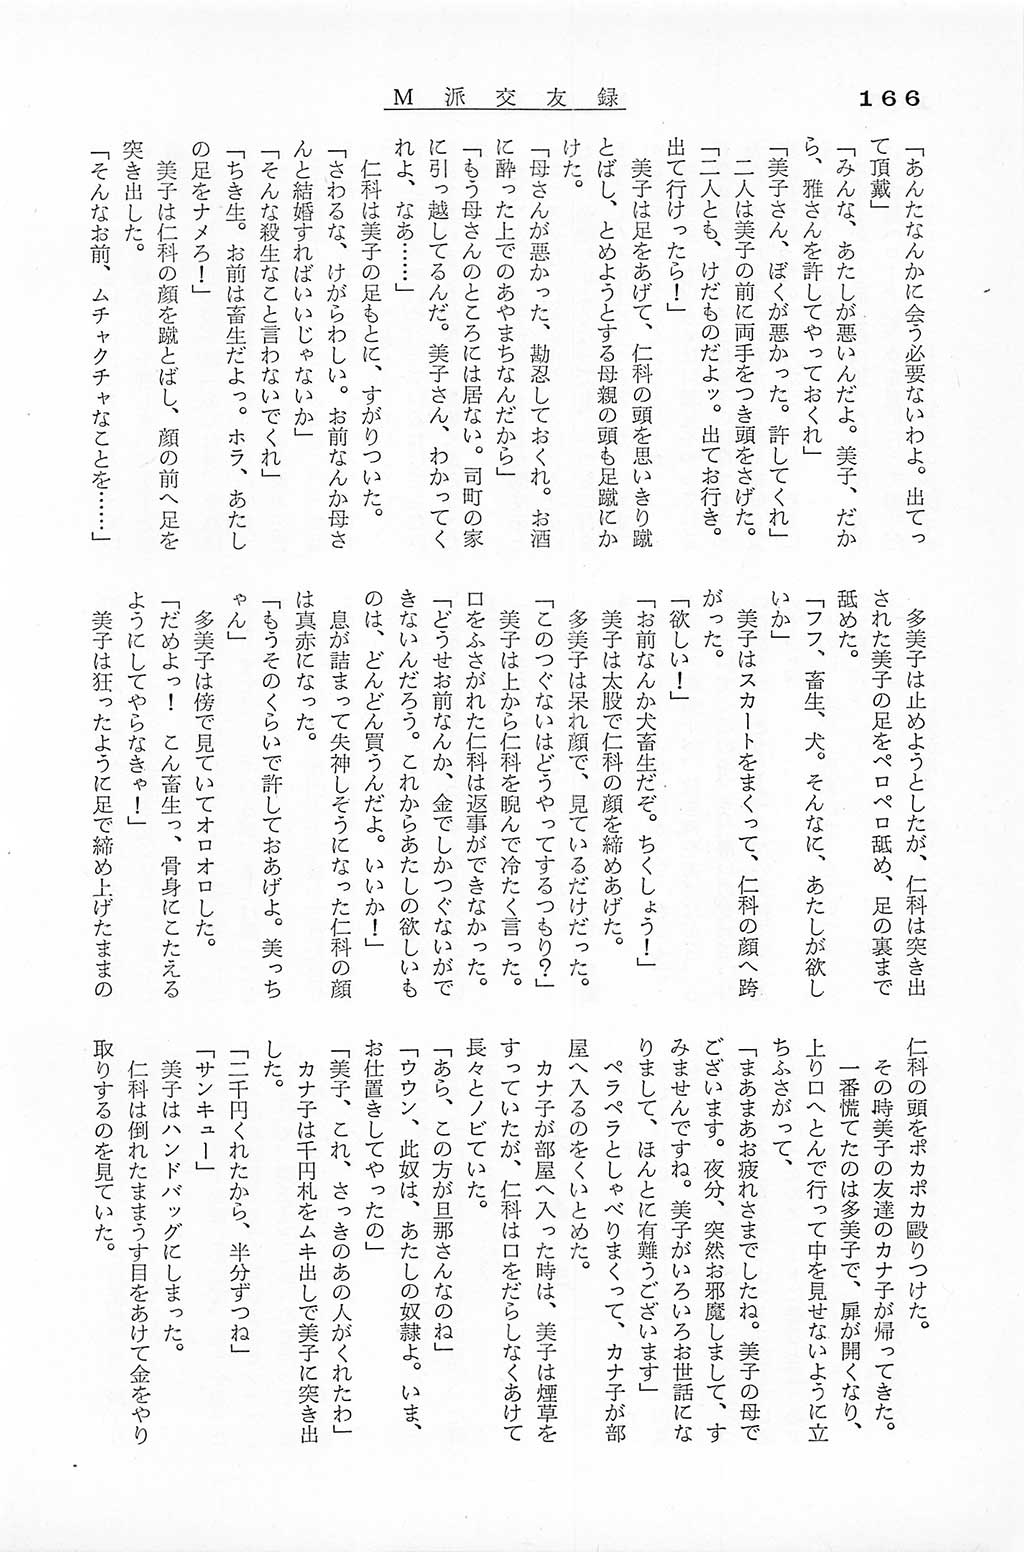 166
M派交友録
「あんたなんかに会う必要ないわよ。出てっ
て頂戴」
「みんな、あたしが悪いんだよ。美子、だか
ら、雅さんを許してやっておくれ」
「美子さん、ぼくが悪かった。許してくれ」
二人は美子の前に両手をつき頭をさげた。
「二人とも、けだものだよッ。出てお行き。
出て行けったら！」
美子は足をあげて、仁科の頭を思いきり蹴
とばし、とめようとする母親の頭も足蹴にか
けた。
「母さんが悪かった、勘忍しておくれ。お酒
に酔った上でのあやまちなんだから」
「もう母さんのところには居ない。司町の家
に引っ越してるんだ。美子さん、わかってく
れよ、なあ……」
仁科は美子の足もとに、すがりついた。
「さわるな、けがらわしい。お前なんか母さ
んと結婚すればいいじゃないか」
「そんな殺生なこと言わないでくれ」
「ちき生。お前は畜生だよっ。ホラ、あたし
の足をナメろ！」
美子は仁科の顔を蹴とばし、顔の前へ足を
突き出した。
「そんなお前、ムチャクチャなことを……」
多美子は止めようとしたが、仁科は突き出
された美子の足をペロペロ舐め、足の裏まで
舐めた。
「フフ、畜生、犬。そんなに、あたしが欲し
いか」
美子はスカートをまくって、仁科の顔へ跨
がった。
「欲しい！」
「お前なんか犬畜生だぞ。ちくしょう！」
美子は太股で仁科の顔を締めあげた。
多美子は呆れ顔で、見ているだけだった。
「このつぐないはどうやってするつもり？」
美子は上から仁科を睨んで冷たく言った。
口をふさがれた仁科は返事ができなかった。
「どうせお前なんか、金でしかつぐないがで
きないんだろう。これからあたしの欲しいも
のは、どんどん買うんだよ。いいか！」
息が詰まって失神しそうになった仁科の顔
は真赤になった。
「もうそのくらいで許しておあげよ。美っち
ゃん」
多美子は傍で見ていてオロオロした。
「だめよっ！　こん畜生っ、骨身にこたえる
ようにしてやらなきゃ！」
美子は狂ったように足で締め上げたままの
仁科の頭をポカポカ毆りつけた。
その時美子の友達のカナ子が帰ってきた。
一番慌てたのは多美子で、扉が開くなり、
上り口へとんで行って中を見せないように立
ちふさがって、
「まあまあお疲れさまでしたね。美子の母で
ございます。夜分、突然お邪魔しまして、す
みませんですね。美子がいろいろお世話にな
りまして、ほんとに有難うございます」
ペラペラとしゃべりまくって、カナ子が部
屋へ入るのをくいとめた。
カナ子が部屋へ入った時は、美子は煙草を
すっていたが、仁科は口をだらしなくあけて
長々とノビていた。
「あら、この方が旦那さんなのね」
「ウウン、此奴は、あたしの奴隷よ。いま、
お仕置きしてやったの」
「美子、これ、さっきのあの人がくれたわ」
カナ子は千円札をムキ出しで美子に突き出
した。
「二千円くれたから、半分ずつね」
「サンキュー」
美子はハンドバッグにしまった。
仁科は倒れたままうす目をあけて金をやり
取りするのを見ていた。